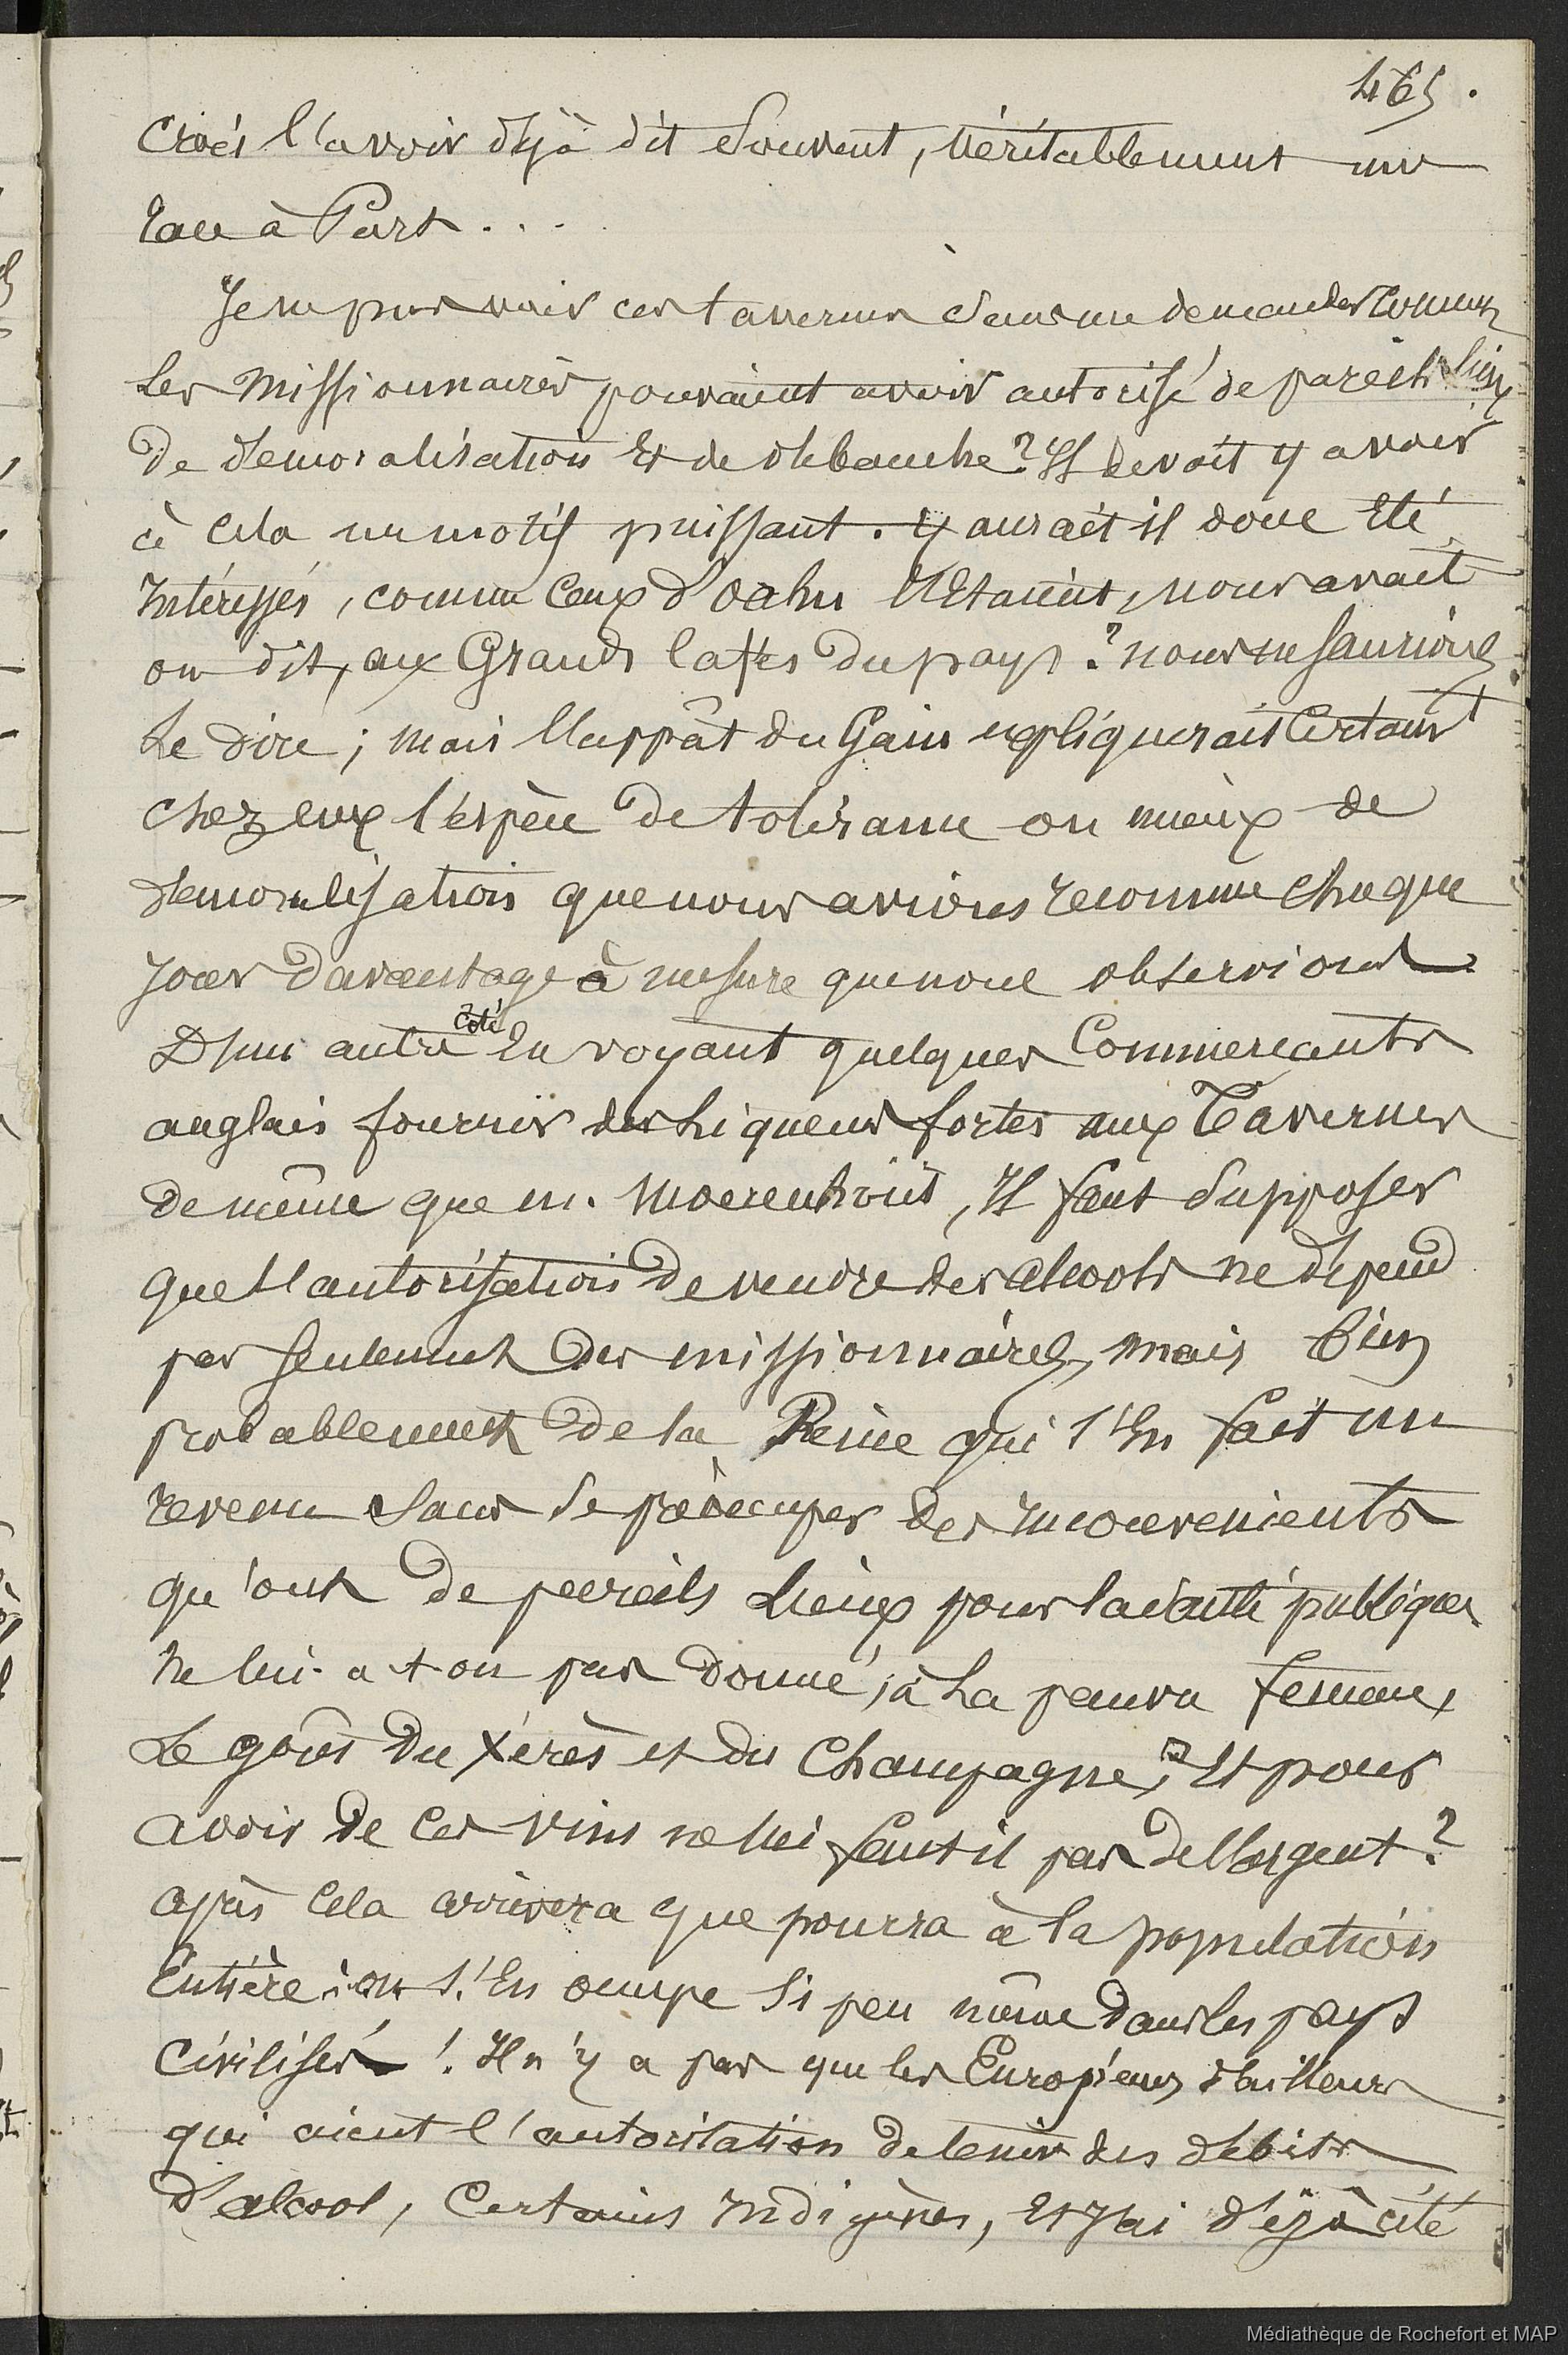 465.
Crois l'avoir déjà dit souvent, véritablement une
race à Part...
Je ne puis voir ces tavernes sans me demander comment
les missionnaires pouvaient avoir autorisé de pareils lieux
de démoralisation et de débauche? Il devait y avoir
à cela un motif puissant. y aurait il donc été
intéressés, comme ceux d'oahu l'Etaient, nous avait
on dit, aux Grands cafés du pays? nous ne saurions
le dire; mais l'appât du Gain expliquerait certaint
chez eux l'espèce de tolérance ou mieux de
démoralisation que nous avions reconnue chaque
jour davantage à mesure que nous observions
D'un autre coté en voyant quelques Commerçants
anglais fournir des liqueurs fortes aux Tavernes
de même que m. Moerenhout, Il faut supposer
que l'autorisation de vendre des alcools ne dépend
pas seulement des missionnaires, mais bien
probablement de la Reine qui s'En fait un
revenu sans se préocuper des inconvenients
qu'ont de pareils Lieux pour la santé publique.
Ne lui a t on pas donné, à la pauvre femme,
Le goût du Xérès et du Champagne? Et pour
avoir de ces vins ne lui faut il pas de l'argent?
après cela arrivera que pourra à la population
Entière; on s'En occupe si peu même dans les pays
Civilisés!. Il n'y a pas que les Européens d'ailleurs
qui aient l'autorisation de tenir des débits
d'alcool, certains indigènes, et j'ai déjà cité
Médiathèque de Rochefort et MAP